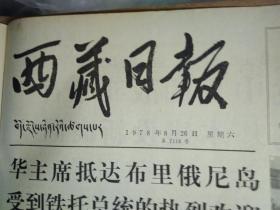 西藏日報
བོད་ལྗོངས་ཉིན་རེའི་ཚགས་པར
1978年8月26日 星期六
华主席抵达布里俄尼岛
受到铁托总统的热烈欢迎